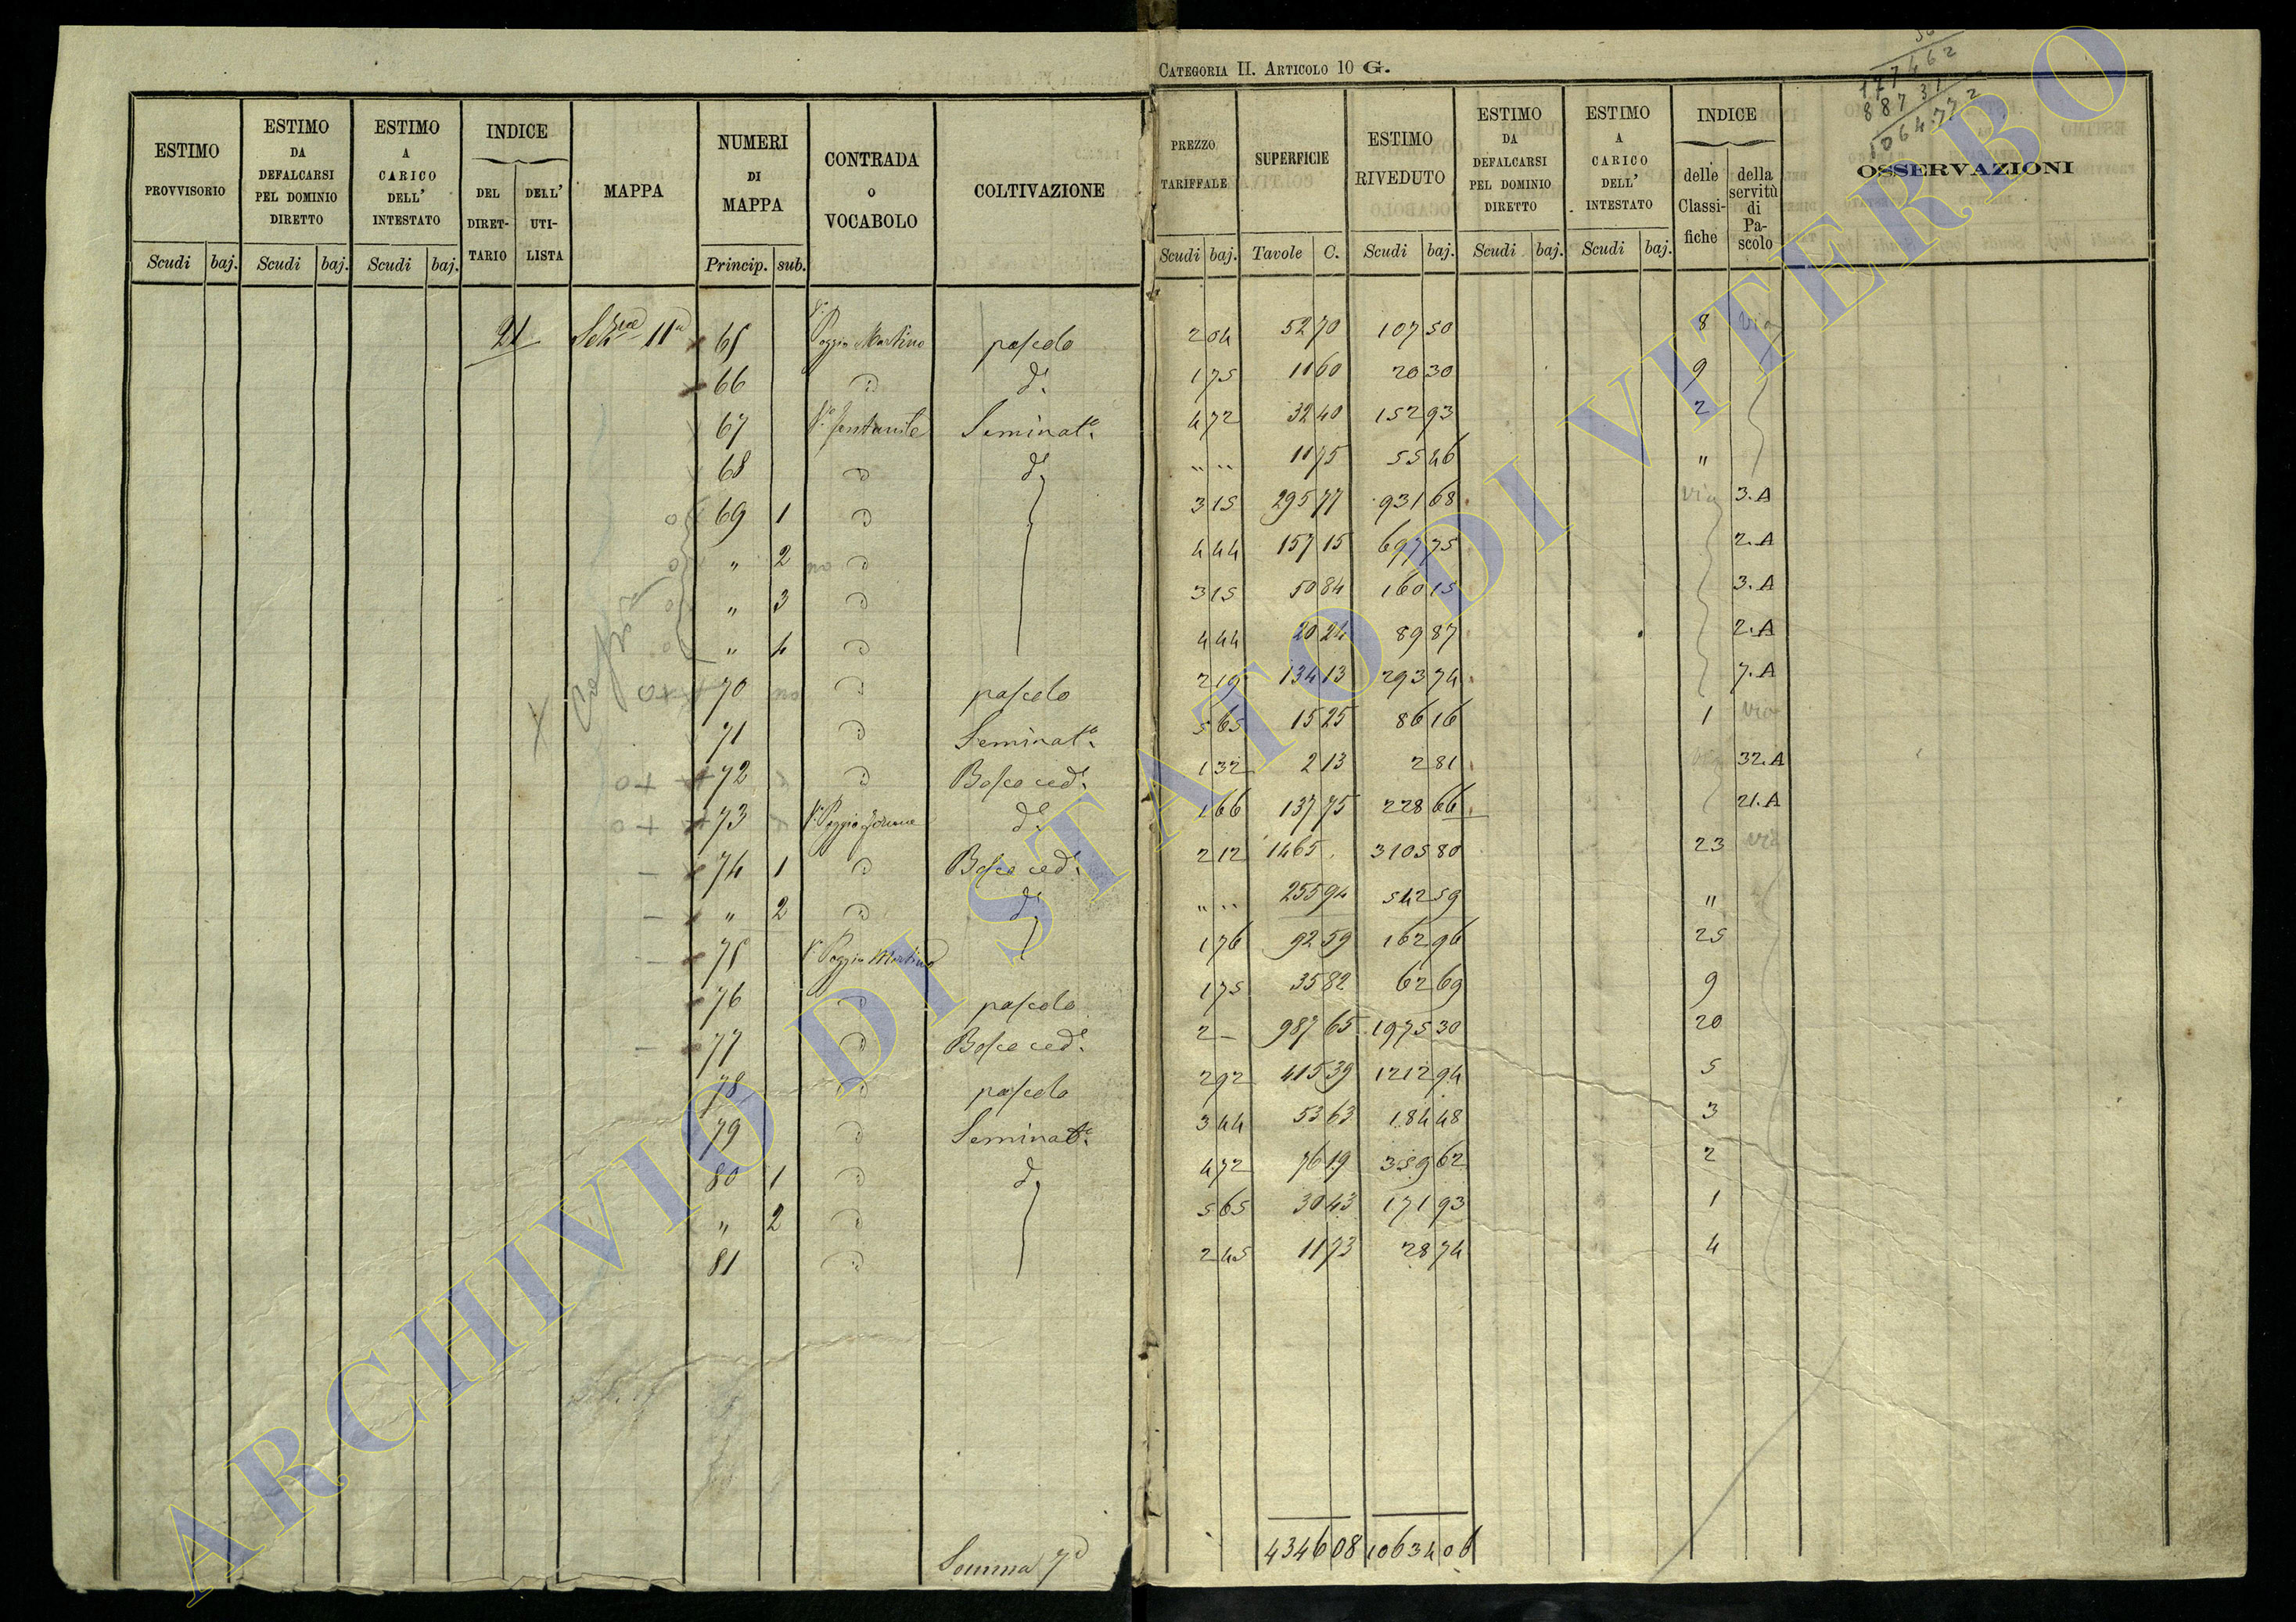 CATEGORIA II. ARTICOLO 10 G.
177462
88731
1064772
ESTIMO PROVVISORIO
ESTIMO DA DEFALCARSI PEL DOMINIO DIRETTO
ESTIMO A CARICO DELL' INTESTATO
INDICE
DEL DIRETTARIO
DELL' UTILISTA
MAPPA
NUMERI DI MAPPA
CONTRADA o VOCABOLO
COLTIVAZIONE
PREZZO TARIFFALE
SUPERFICIE
ESTIMO RIVEDUTO
ESTIMO DA DEFALCARSI PEL DOMINIO DIRETTO
ESTIMO A CARICO DELL' INTESTATO
INDICE
delle Classifiche
della servitù di Pascolo
OSSERVAZIONI
Scudi baj. Scudi baj. Scudi baj. Princip. sub. Scudi baj. Tavole C. Scudi baj. Scudi baj. Scudi baj.
21 Sez.ne 11a 65 Vo Poggio Martino pascolo 2 04 52 70 107 50 8 via
66 " do 1 75 11 60 20 30 9
67 Seminato. 4 72 32 40 152 93 2
68 " do 11 75 55 46 "
69 1 " 3 15 295 77 931 68 via 3.A
" 2 no " 4 44 157 15 697 75 2.A
" 3 " 3 15 50 84 160 15 3.A
" 4 " 4 44 20 24 89 87 2.A
70 no " pascolo 2 19 134 13 293 74 7.A
71 " Seminato. 5 65 15 25 86 16 1 via
72 " Bosco cedo. 1 32 2 13 2 81 32.A
73 Vo Poggio do 1 66 137 75 228 66 21.A
74 1 " Bosco cedo. 2 12 1465 3105 80 23 via
" 2 " do 255 94 542 59 "
75 Vo Poggio Martino 1 76 92 59 162 96 25
76 " pascolo 1 75 35 82 62 69 9
77 " Bosco cedo. 2 – 987 65 1975 30 20
78 " pascolo 2 92 415 39 1212 94 5
79 " Seminato. 3 44 53 63 184 48 3
80 1 " do 4 72 76 19 359 62 2
" 2 " 5 65 30 43 171 93 1
81 " 2 45 11 73 28 74 4
Somma 7a 4346 08 10634 06
ARCHIVIO DI STATO DI VITERBO